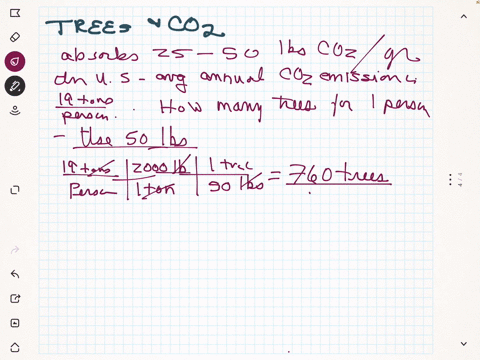 TREES & CO2
absorbs 25 - 50 lbs CO2/yr
In U.S - avg annual CO2 emission is
19 tons/person. How many trees for 1 person
- Use 50 lbs
19 tons | 2000 lb | 1 tree
Person | 1 ton | 50 lbs = 760 trees